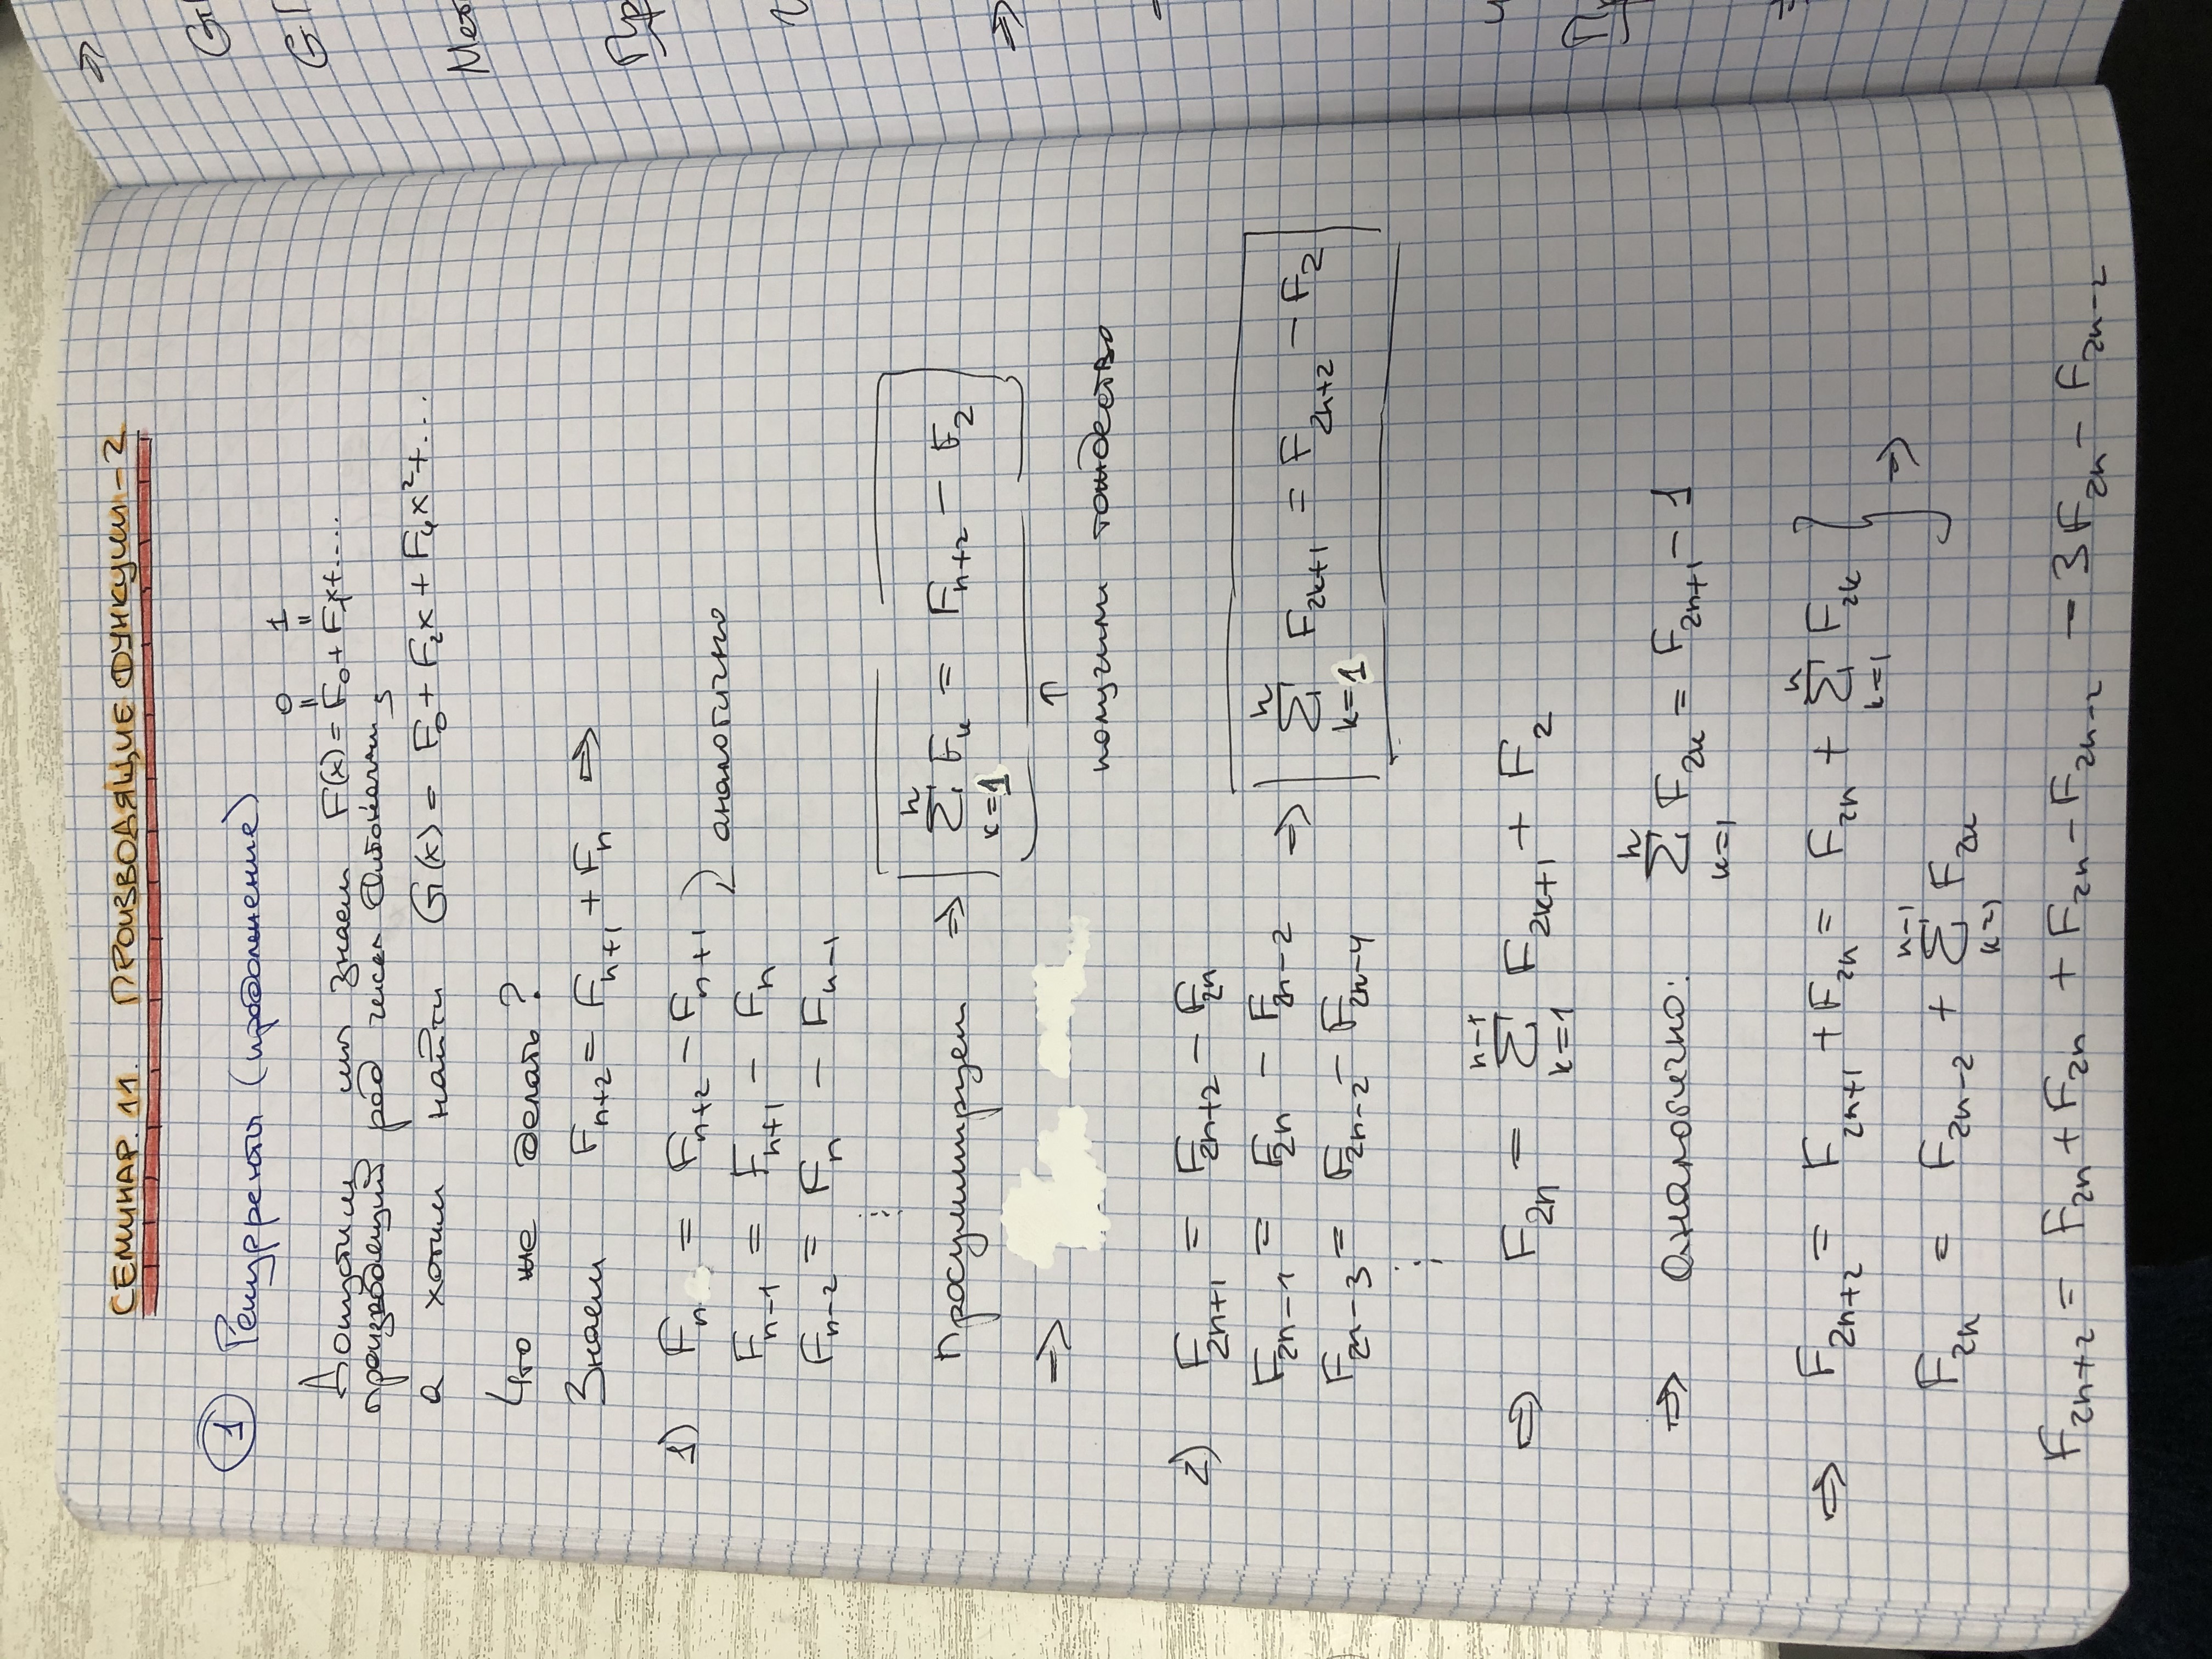 СЕМИНАР. 11. ПРОИЗВОДЯЩИЕ ФУНКЦИИ - 2
1 Рекурренты (продолжение)
0 1
॥ ॥
Допустим мы знаем F(x) = F₀ + F₁x + ....
производящий ряд чисел Фибоначчи,
а хотим найти G(x) = F₀ + F₂x + F₄x² + ...
Что же делать?
Знаем Fₙ₊₂ = Fₙ₊₁ + Fₙ ⇒
1) Fₙ = Fₙ₊₂ - Fₙ₊₁
аналогично
Fₙ₋₁ = Fₙ₊₁ - Fₙ
Fₙ₋₂ = Fₙ - Fₙ₋₁
⋮
Просуммируем ⇒ ∑_{k=1}^{n} Fₖ = Fₙ₊₂ - F₂
⇒
↑
получили тождество
2) F₂ₙ₊₁ = F₂ₙ₊₂ - F₂ₙ
F₂ₙ₋₁ = F₂ₙ - F₂ₙ₋₂ ⇒ ∑_{k=1}^{n} F₂ₖ₊₁ = F₂ₙ₊₂ - F₂
F₂ₙ₋₃ = F₂ₙ₋₂ - F₂ₙ₋₄
⋮
⇒ F₂ₙ = ∑_{k=1}^{n-1} F₂ₖ₊₁ + F₂
⇒ аналогично: ∑_{k=1}^{n} F₂ₖ = F₂ₙ₊₁ - 1
⇒ F₂ₙ₊₂ = F₂ₙ₊₁ + F₂ₙ = F₂ₙ + ∑_{k=1}^{n} F₂ₖ } ⇒
F₂ₙ = F₂ₙ₋₂ + ∑_{k=1}^{n-1} F₂ₖ
F₂ₙ₊₂ = F₂ₙ + F₂ₙ + F₂ₙ - F₂ₙ₋₂ = 3F₂ₙ - F₂ₙ₋₂
⇒
G(
Мет
Пр
⇒